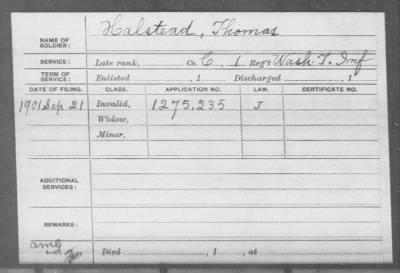 NAME OF SOLDIER: Halstead, Thomas
SERVICE: Late rank, Co. E, 1 Reg't Wash. T. Inf
TERM OF SERVICE: Enlisted , 1 Discharged , 1
DATE OF FILING. CLASS. APPLICATION NO. LAW. CERTIFICATE NO.
1901 Sep 21 Invalid, 1275,235 J
Widow,
Minor,
ADDITIONAL SERVICES:
REMARKS:
Died , 1 , at